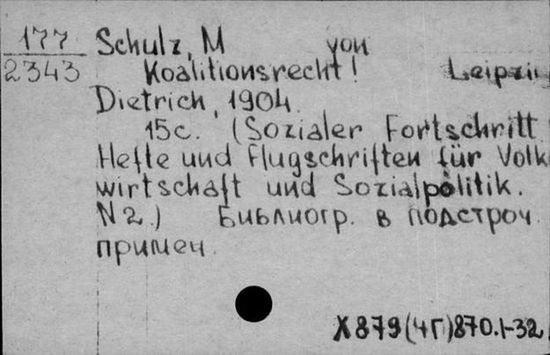 177
2343
Schulz, M von
Koalitionsrecht! Leipzi
Dietrich, 1904.
15c. (Sozialer Fortschritt
Hefte und Flugschriften für Volk
wirtschaft und Sozialpolitik.
N 2.) Библиогр. в подстроч.
примеч.
X879(4Г)870.1-32